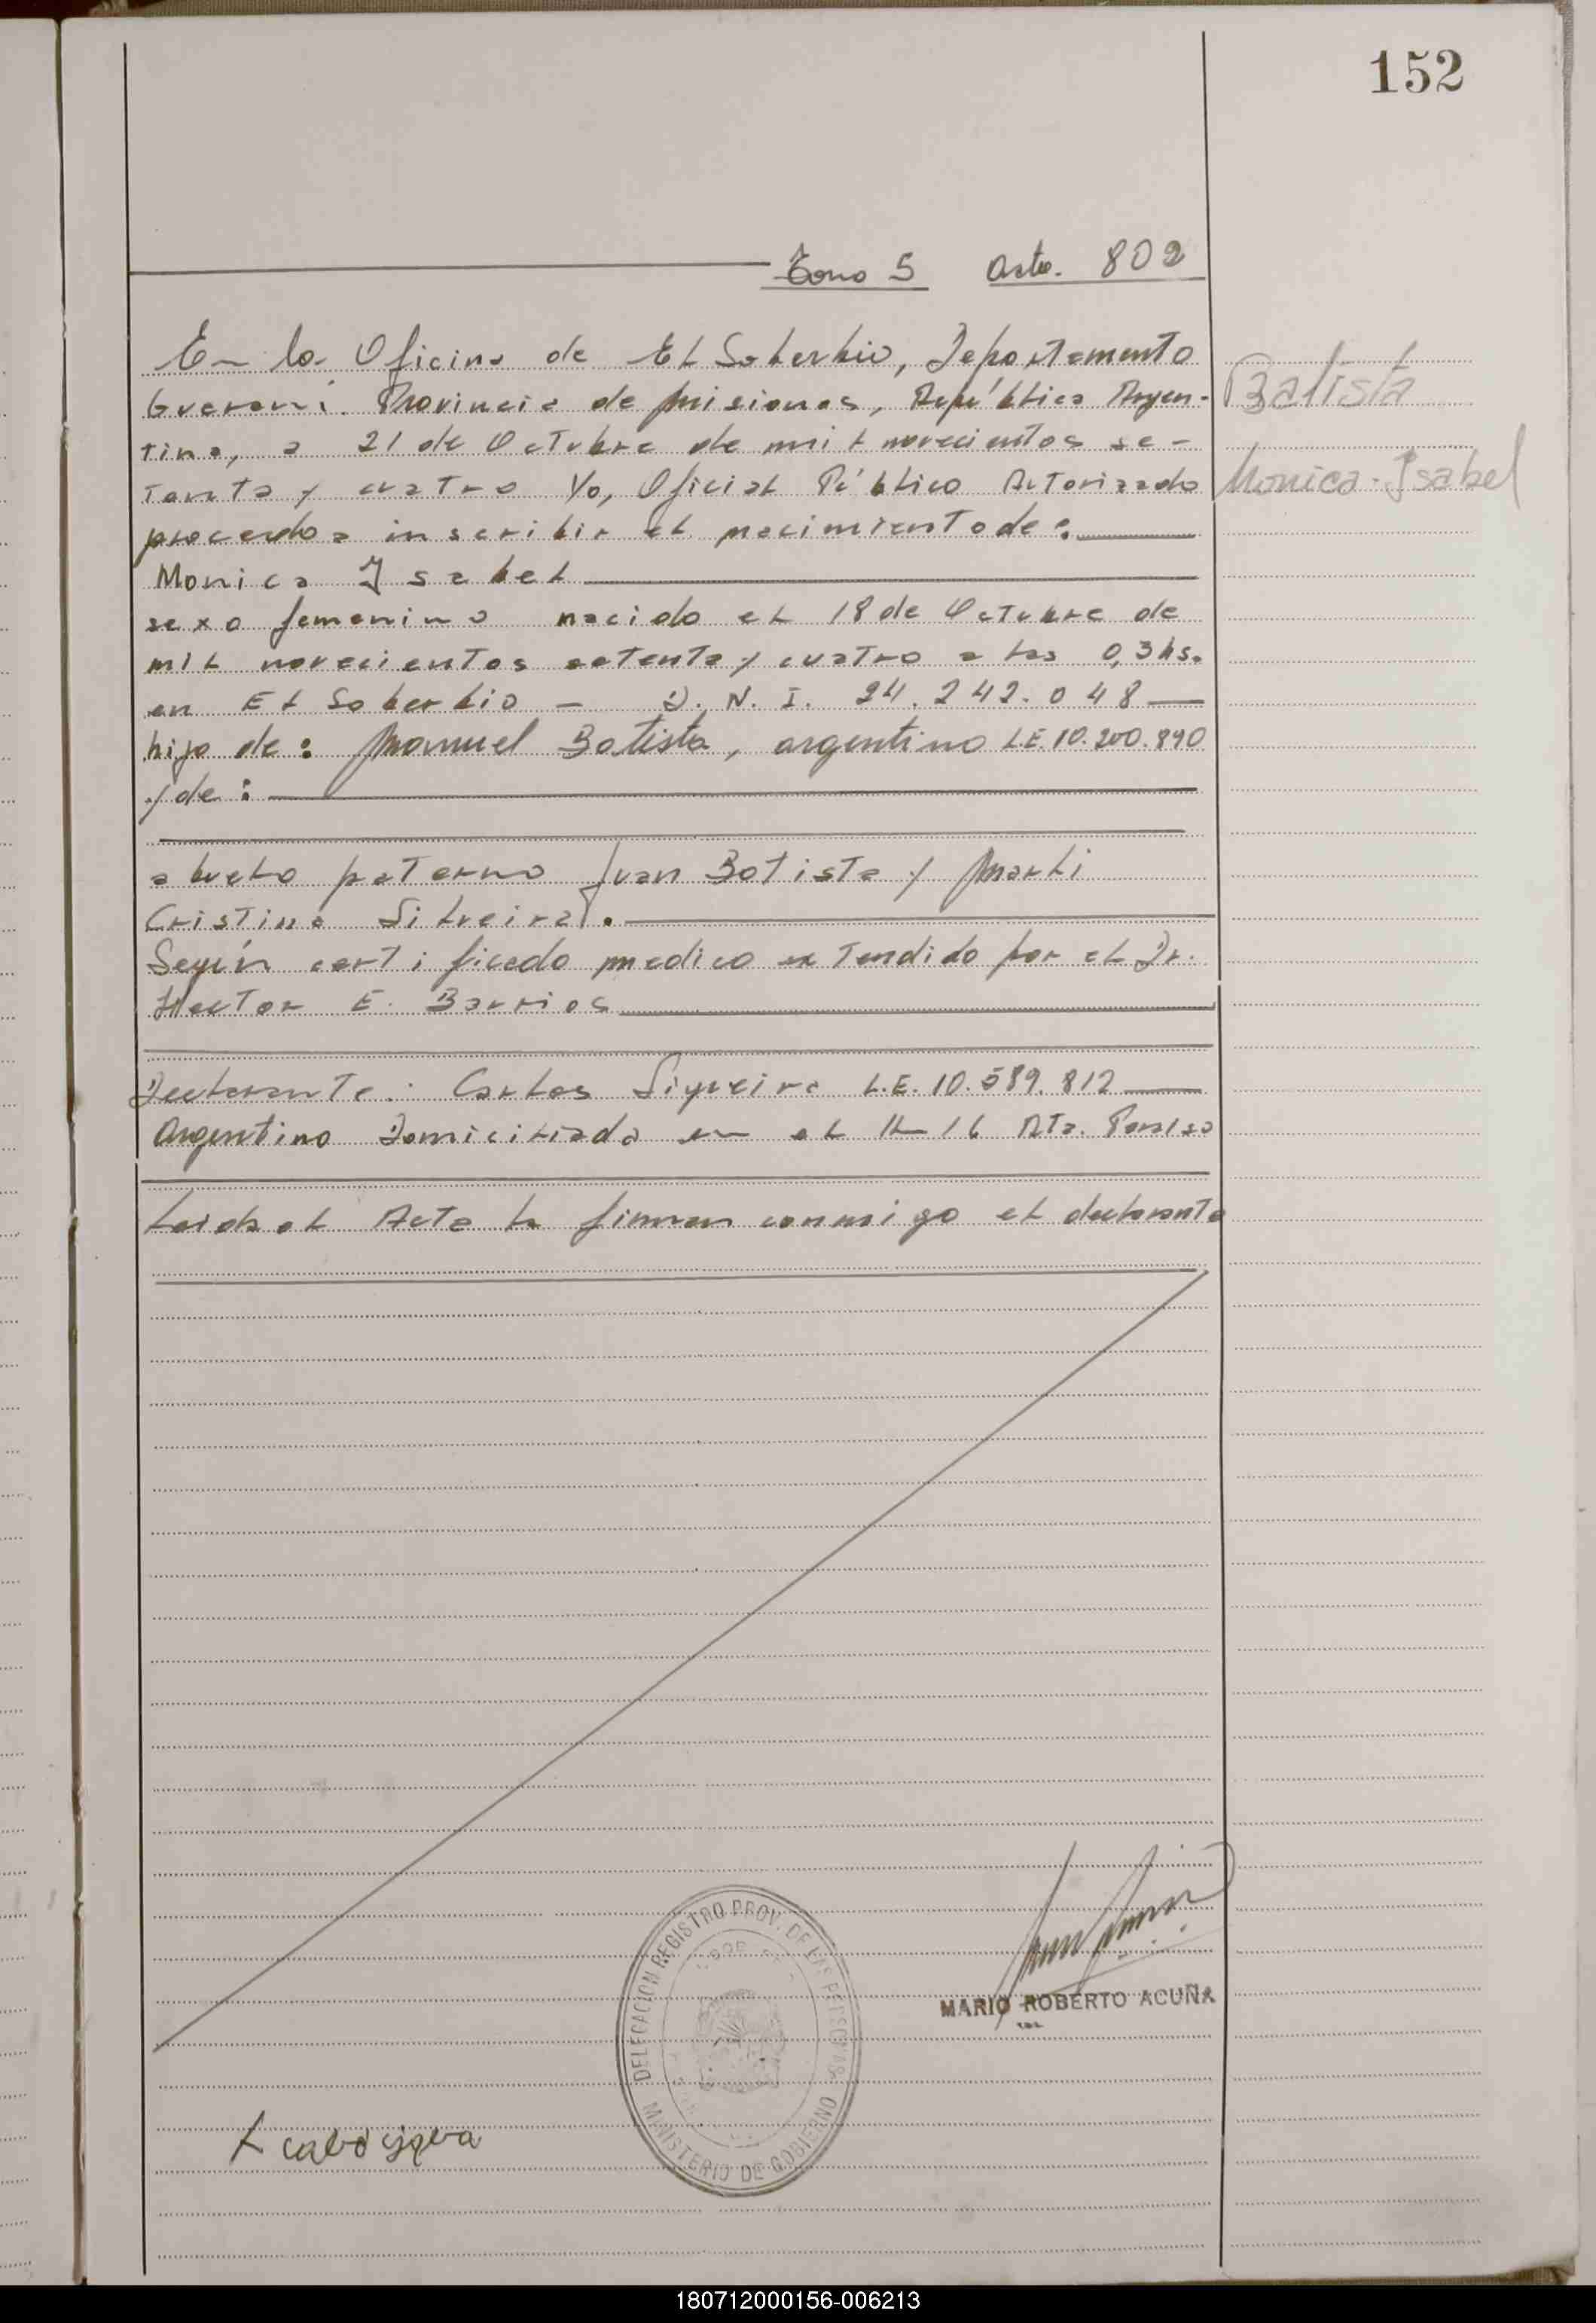 152
Tomo 5 Acta. 802
En la Oficina de El Soberbio, Departamento
Guarani. Provincia de Misiones, República Argen-
tina, a 21 de Octubre de mil novecientos se-
tenta y cuatro Yo, Oficial Público Autorizado
procedo a inscribir el nacimiento de:
Monica Isabel
sexo femenino nacido el 18 de Octubre de
mil novecientos setenta y cuatro a las 0,3 hs.
en El Soberbio - D. N. I. 24.242.048
hijo de: Manuel Batista, argentino L.E. 10.200.890
y de:
abuelo paterno Juan Batista y
Cristina Silveira.
Según certificado medico extendido por el Dr.
Hector E. Barrios
Declarante: Carlos Siqueira L.E. 10.589.812
Argentino Domiciliado en el 16 Paraiso
Leida el Acta la firman conmigo el declarante
Batista
Monica Isabel
DELEGACION REGISTRO PROV. DE LAS PERSONAS
MINISTERIO DE GOBIERNO
MARIO ROBERTO ACUÑA
180712000156-006213